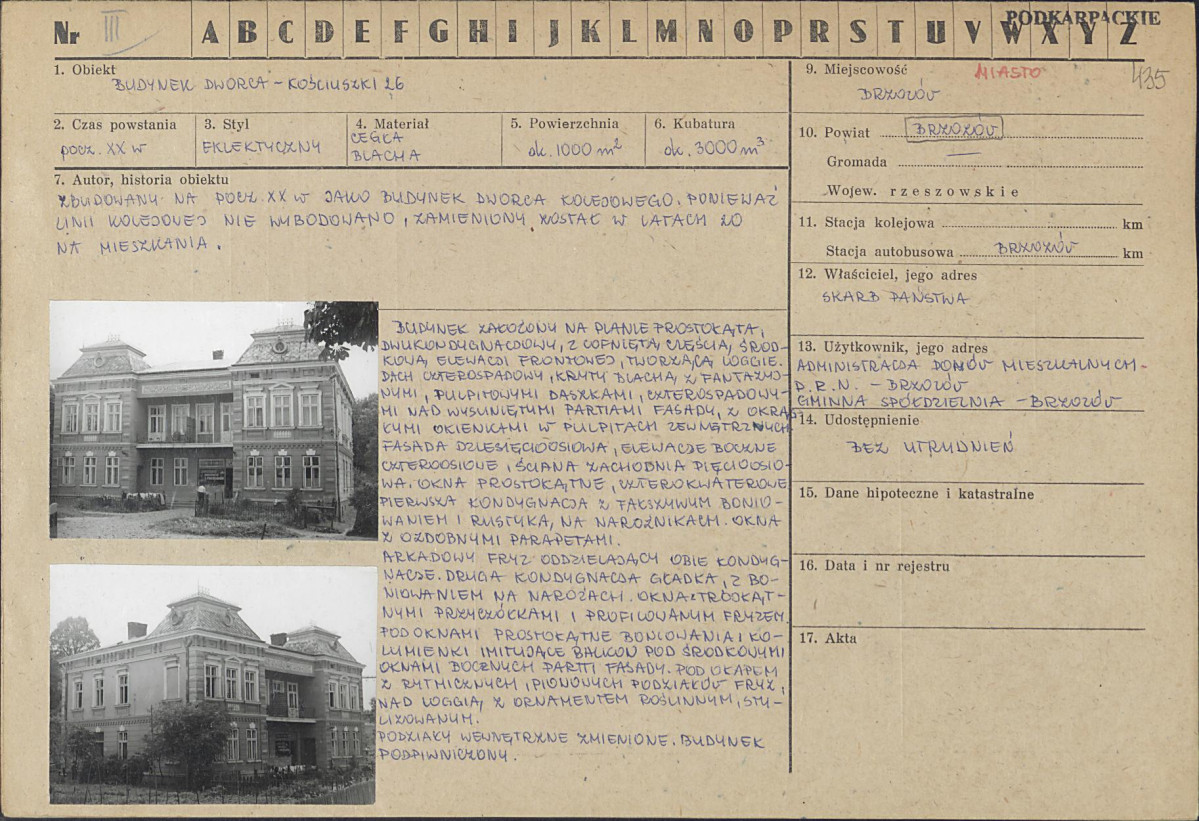 Nr III A B C D E F G H I J K L M N O P R S T U V W X Y Z
PODKARPACKIE
1. Obiekt
BUDYNEK DWORCA - KOŚCIUSZKI 26
2. Czas powstania
POCZ. XX W
3. Styl
EKLEKTYCZNY
4. Materiał
CEGŁA
BLACHA
5. Powierzchnia
ok. 1000 m²
6. Kubatura
ok. 3000 m³
7. Autor, historia obiektu
ZBUDOWANY NA POCZ. XX W JAKO BUDYNEK DWORCA KOLEJOWEGO. PONIEWAŻ
LINII KOLEJOWEJ NIE WYBUDOWANO, ZAMIENIONY ZOSTAŁ W LATACH 20
NA MIESZKANIA.
BUDYNEK ZAŁOŻONY NA PLANIE PROSTOKĄTA,
DWUKONDYGNACJOWY, Z COFNIĘTĄ CZĘŚCIĄ ŚROD-
KOWĄ ELEWACJI FRONTOWEJ, TWORZĄCĄ LOGGIE.
DACH CZTEROSPADOWY, KRYTY BLACHĄ, Z FANTAZYJ-
NYMI, PULPITOWYMI DASZKAMI, CZTEROSPADOWY-
MI NAD WYSUNIĘTYMI PARTIAMI FASADY, Z OKRĄG
ŁYMI OKIENKAMI W PULPITACH ZEWNĘTRZNYCH
FASADA DZIESIĘCIOOSIOWA, ELEWACJE BOCZNE
CZTEROOSIOWE, ŚCIANA ZACHODNIA PIĘCIOOSIO-
WA. OKNA PROSTOKĄTNE, CZTEROKWATEROWE
PIERWSZA KONDYGNACJA Z FAŁSZYWYM BONIO-
WANIEM I RUSTYKĄ, NA NAROŻNIKACH. OKNA
Z OZDOBNYMI PARAPETAMI.
ARKADOWY FRYZ ODDZIELAJĄCY OBIE KONDYG-
NACJE. DRUGA KONDYGNACJA GŁADKA, Z BO-
NIOWANIEM NA NAROŻACH. OKNA Z TRÓJKĄT-
NYMI PRZYCZÓŁKAMI I PROFILOWANYM FRYZEM.
POD OKNAMI PROSTOKĄTNE BONIOWANIA I KO-
LUMIENKI IMITUJĄCE BALKON POD ŚRODKOWYMI
OKNAMI BOCZNYCH PARTII FASADY. POD OKAPEM
Z RYTMICZNYCH, PIONOWYCH PODZIAŁÓW FRYZ,
NAD LOGGIĄ, Z ORNAMENTEM ROŚLINNYM, STY-
LIZOWANYM.
PODZIAŁY WEWNĘTRZNE ZMIENIONE. BUDYNEK
PODPIWNICZONY.
9. Miejscowość
MIASTO
435
BRZOZÓW
10. Powiat BRZOZÓW
Gromada —
Wojew. rzeszowskie
11. Stacja kolejowa km
Stacja autobusowa BRZOZÓW km
12. Właściciel, jego adres
SKARB PAŃSTWA
13. Użytkownik, jego adres
ADMINISTRACJA DOMÓW MIESZKALNYCH -
P.R.N. - BRZOZÓW
GMINNA SPÓŁDZIELNIA - BRZOZÓW
14. Udostępnienie
BEZ UTRUDNIEŃ
15. Dane hipoteczne i katastralne
16. Data i nr rejestru
17. Akta